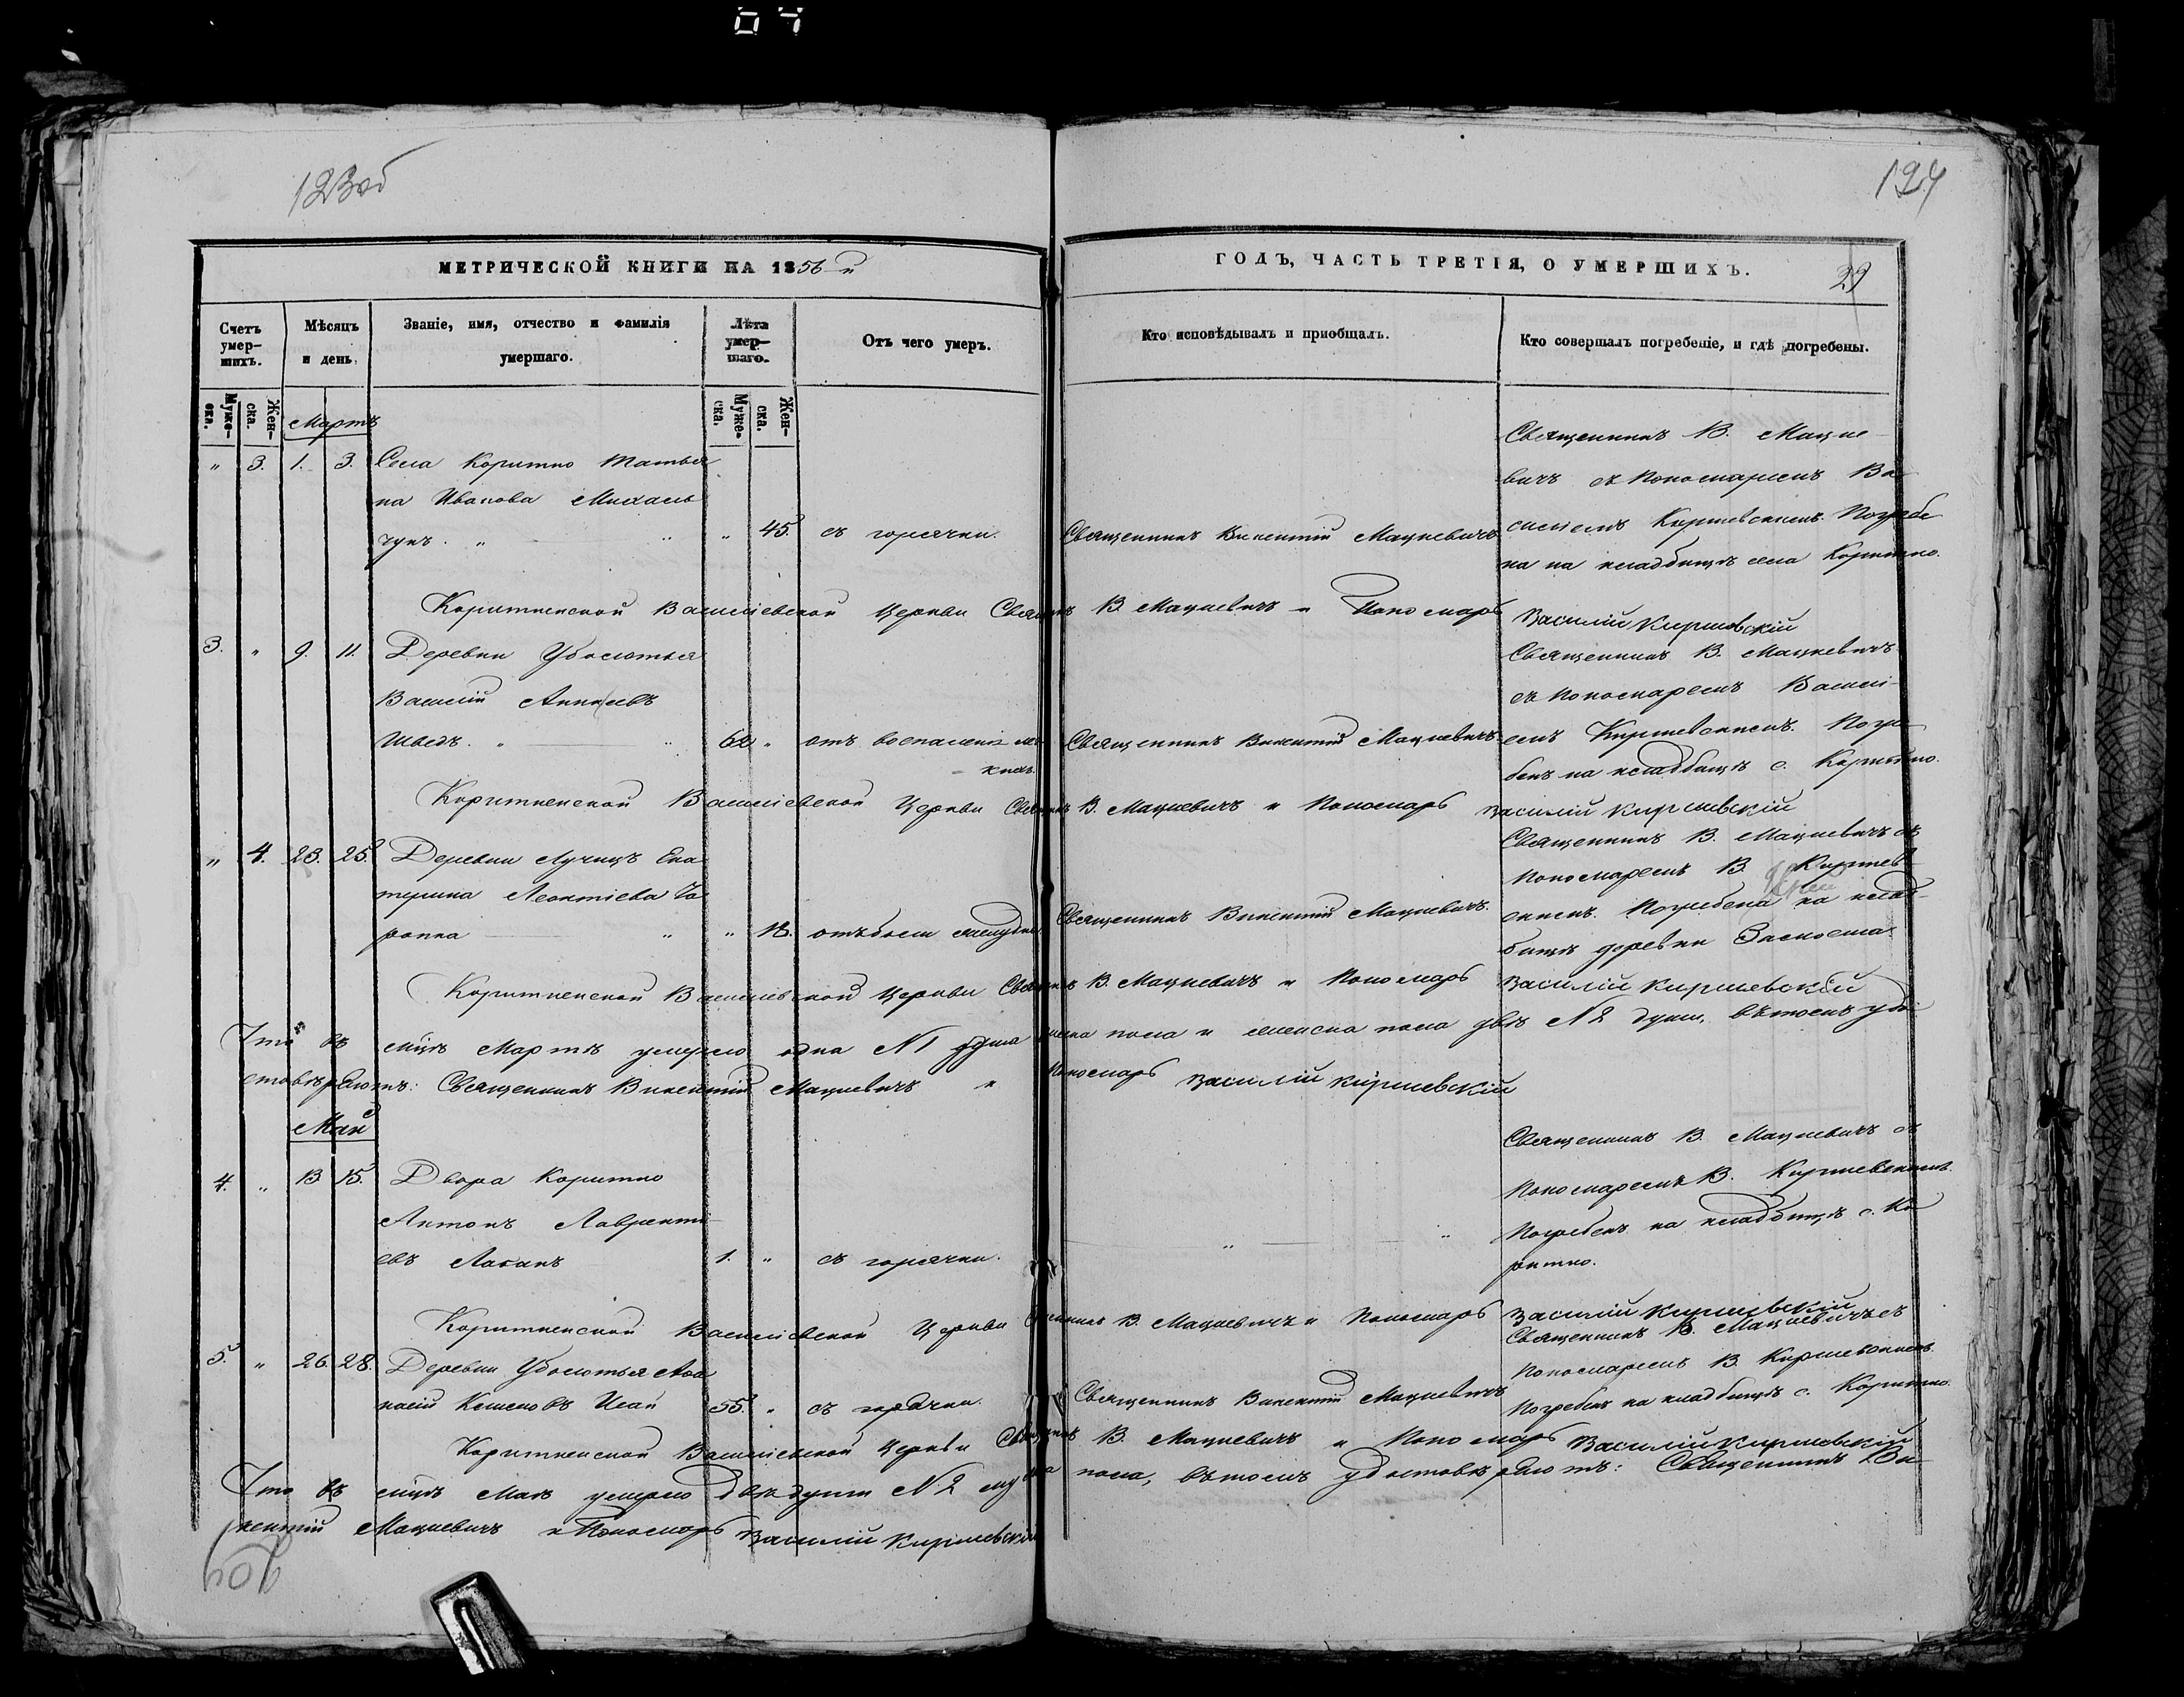 04
123об
124
МЕТРИЧЕСКОЙ КНИГИ НА 1856 й
ГОДЪ, ЧАСТЬ ТРЕТІЯ, О УМЕРШИХЪ.
29
Счетъ умер-шихъ.
Мѣсяцъ и день.
Званіе, имя, отчество и фамилія умершаго.
Лѣта умер-шаго.
Отъ чего умеръ.
Кто исповѣдывалъ и пріобщалъ.
Кто совершалъ погребеніе, и гдѣ погребены.
Муже-ска.
Жен-ска.
Муже-ска.
Жен-ска.
Мартъ
„ 3. 1. 3. Села Коритно Татья
на Иванова Михаль
чукъ. „ „ „ 45. съ горячки.
Священникъ Викентій Мацкевичъ
Священникъ В. Мацке
вичъ съ Пономаремъ Ва
силіемъ Киршевскимъ. Погребе
на на кладбищѣ села Коритно.
Коритненской Василіевской Церкви Священникъ В. Мацкевичъ и Пономарь Василій Киршевскій
3. „ 9. 11. Деревни Уболотья
Василій
Шведъ. „ „ 62 „ отъ воспаленія лег
кихъ.
Священникъ Викентій Мацкевичъ
Священникъ В. Мацкевичъ
съ Пономаремъ Василі-
емъ Киршевскимъ. Погре
бенъ на кладбищѣ с. Коритно.
Коритненской Василіевской Церкви Священникъ В. Мацкевичъ и Пономарь Василій Киршевскій
„ 4. 23. 25. Деревни Лучицъ Ека
терина Леонтіева
„ „ 18.
Священникъ Викентій Мацкевичъ.
Священникъ В. Мацкевичъ съ
Пономаремъ В. Киршев
скимъ. Погребена на клад-
бищѣ деревни
Коритненской Василіевской Церкви Священникъ В. Мацкевичъ и Пономарь Василій Киршевскій
Что въ мцѣ Мартѣ умерло одна N 1 душа мужеска пола и женска пола двѣ N 2 души, въ томъ удо
стовѣряютъ: Священникъ Викентій Мацкевичъ и Пономарь Василій Киршевскій
Май
4. „ 13. 15. Двора Коритно
Антонъ Лаврентi-
евъ 1. „ съ горячки.
„ „
Священникъ В. Мацкевичъ съ
Пономаремъ В. Киршевскимъ.
Погребенъ на кладбищѣ с. Ко
ритно.
Коритненской Василіевской Церкви Священникъ В. Мацкевичъ и Пономарь Василій Киршевскій
5. „ 26. 28. Деревни Уболотья Афа
насій 55. „ съ горячки.
Священникъ Викентій Мацкевичъ
Священникъ В. Мацкевичъ съ
Пономаремъ В. Киршевскимъ.
Погребенъ на кладбищѣ с. Коритно.
Коритненской Василіевской Церкви Священникъ В. Мацкевичъ и Пономарь Василій Киршевскій
Что въ мцѣ Маѣ умерло двѣ души N 2 мужеска пола, въ томъ удостовѣряютъ: Священникъ Ви
кентій Мацкевичъ и Пономарь Василій Киршевскій